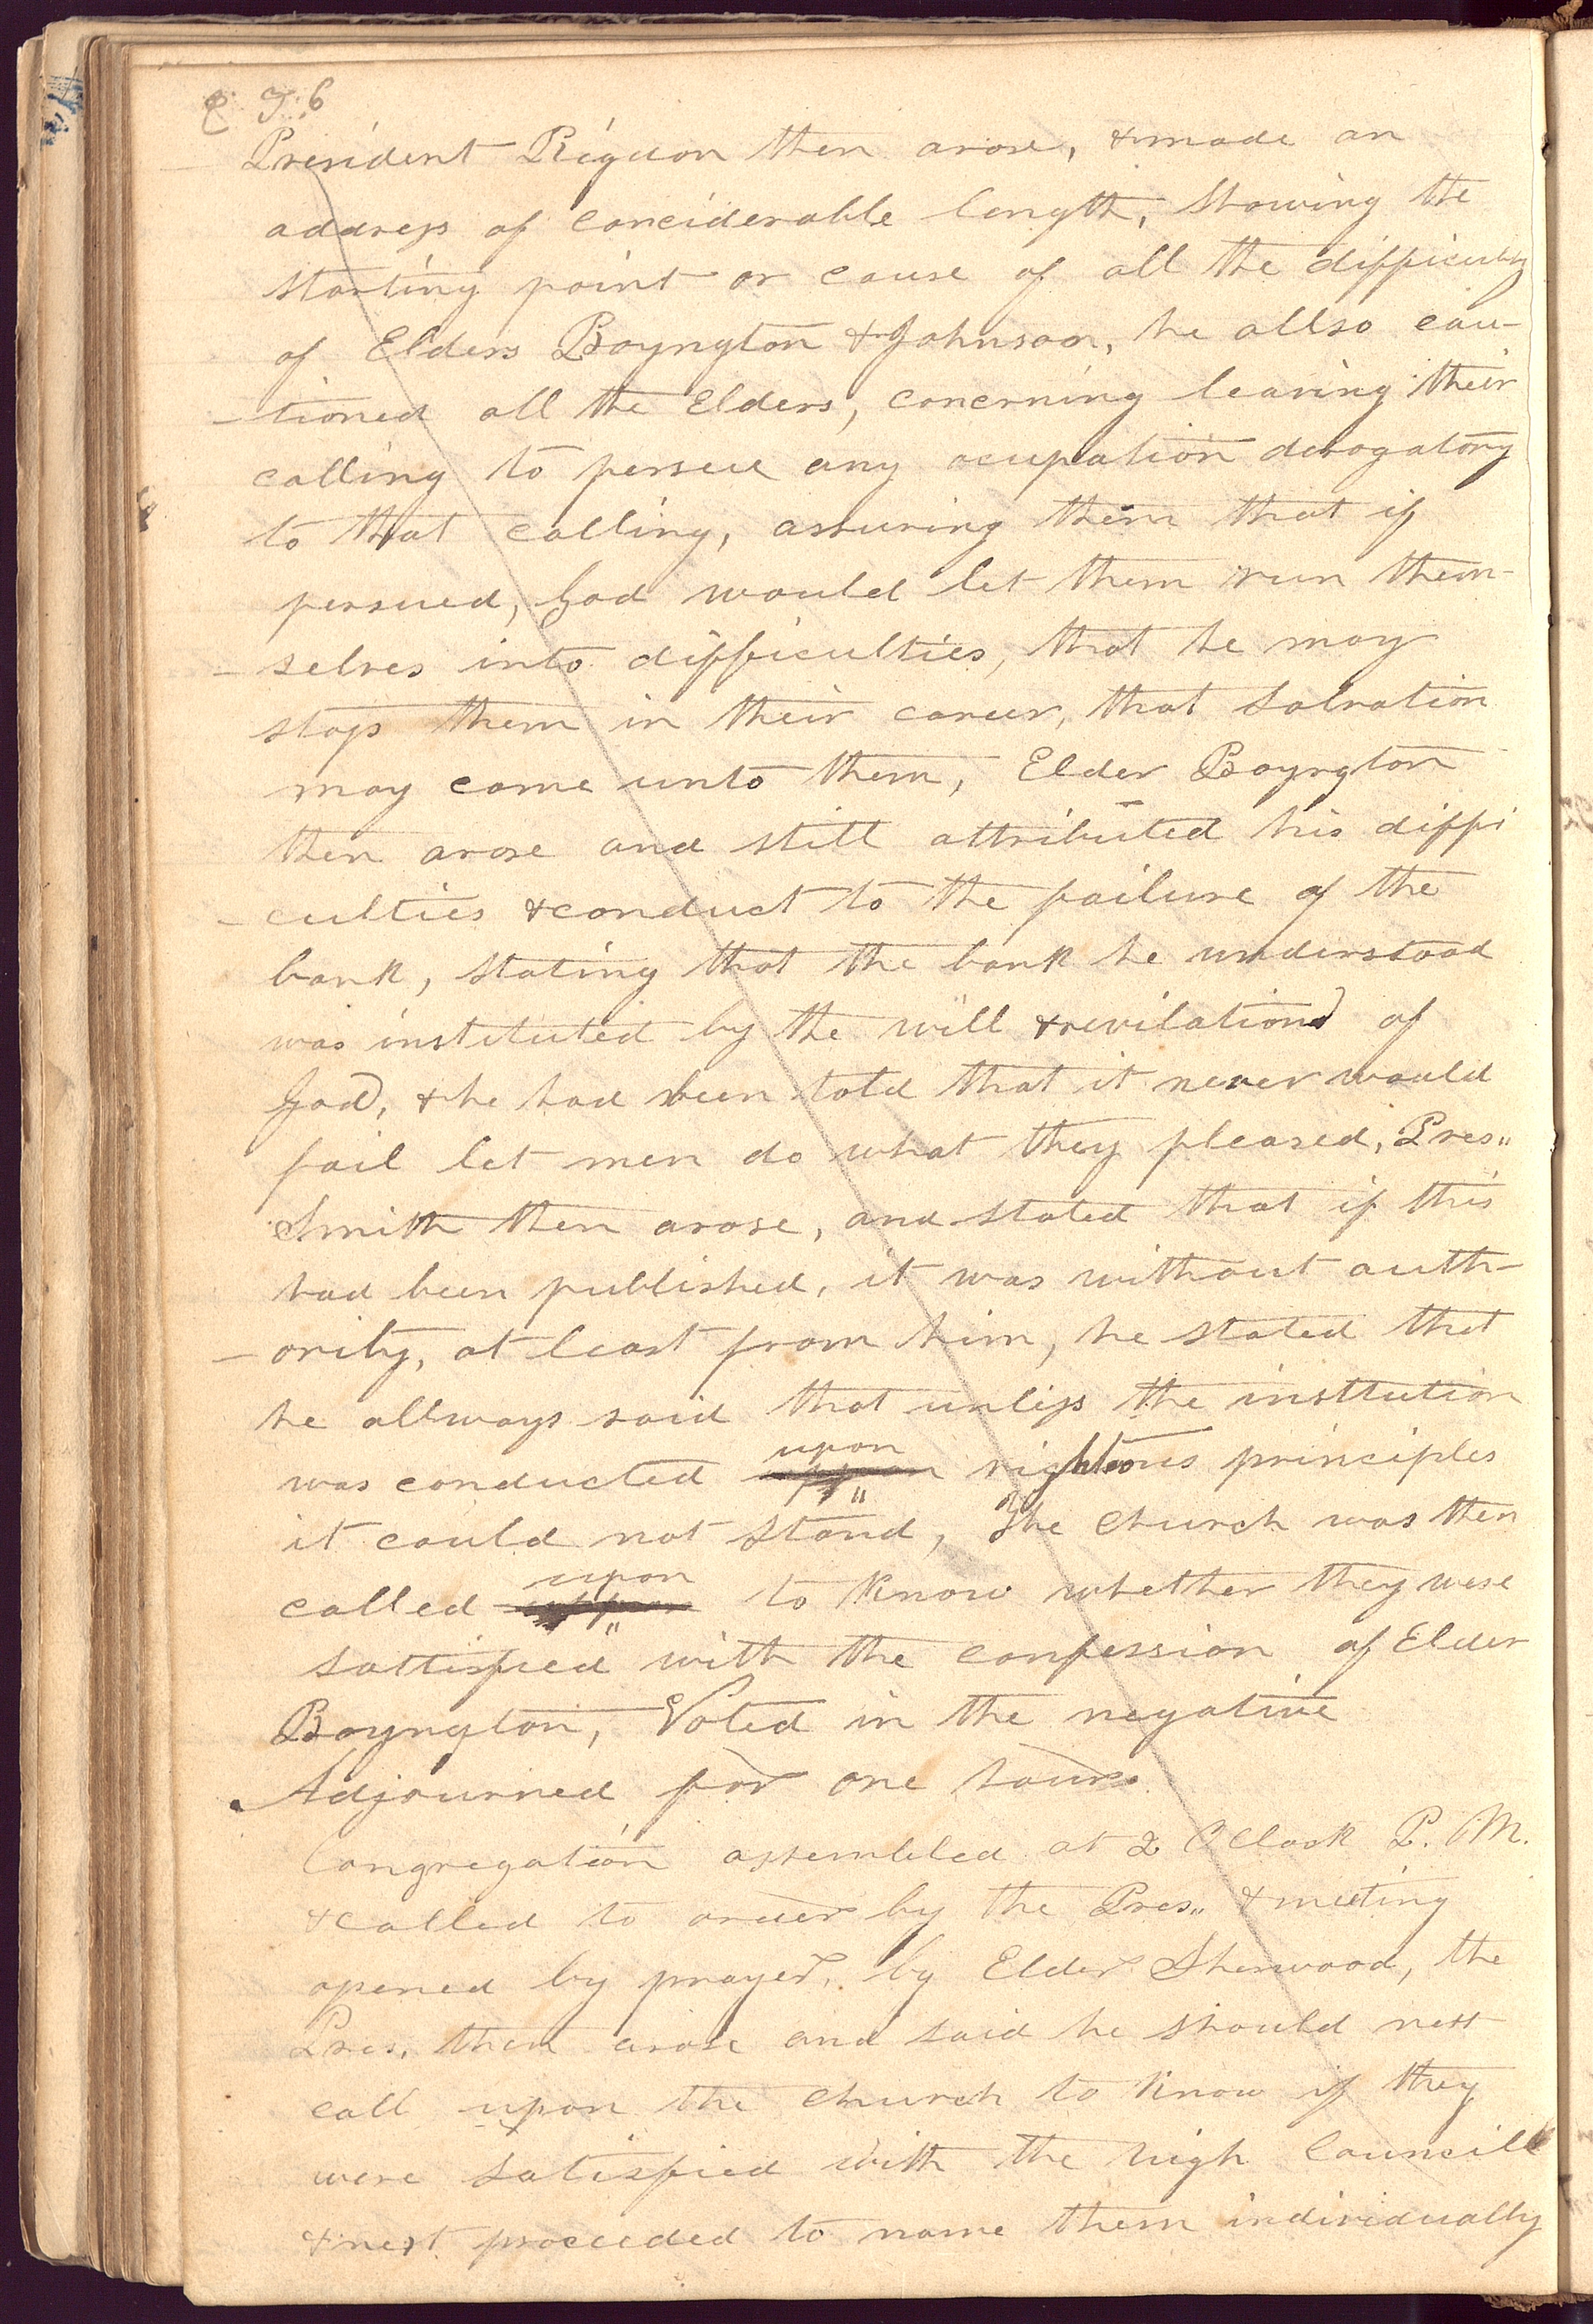 President Rigdon then arose, & made an
address of conciderable length, showing the
starting point or cause of all the difficulty
of Elders Boyngton & Johnson, he allso cau-
-tioned all the Elders, concerning leaving their
calling to persue any ocupation derogatory
to that calling, assuring them that if
persued, God would let them run them-
-selves into difficulties, that he may
stop them in their career, that salvation
may come unto them, Elder Boyngton
then arose and still attributed his diffi
-culties & conduct to the failure of the
bank, stating that the bank he understood
was instituted by the will & revilations of
God, & he had been told that it never would
fail let men do what they pleased, Pres,,
Smith then arose, and stated that if this
had been published, it was without auth-
-ority, at least from him, he stated that
he allways said that unless the insttution
was conducted upon righteous principles
it could not stand, The church was then
called upon to know whether they were
sattisfied with the confession of Elder
Boyngton, Voted in the negative
Adjourned for one hour
Congregation assembled at 2 O Clock P. M.
& called to order by the Pres,, & meeting
opened by prayer, by Elder Sherwood, the
Pres. then arose and said he should next
call upon the church to know if they
were satisfied with the high Councill
& next proceeded to name them individually